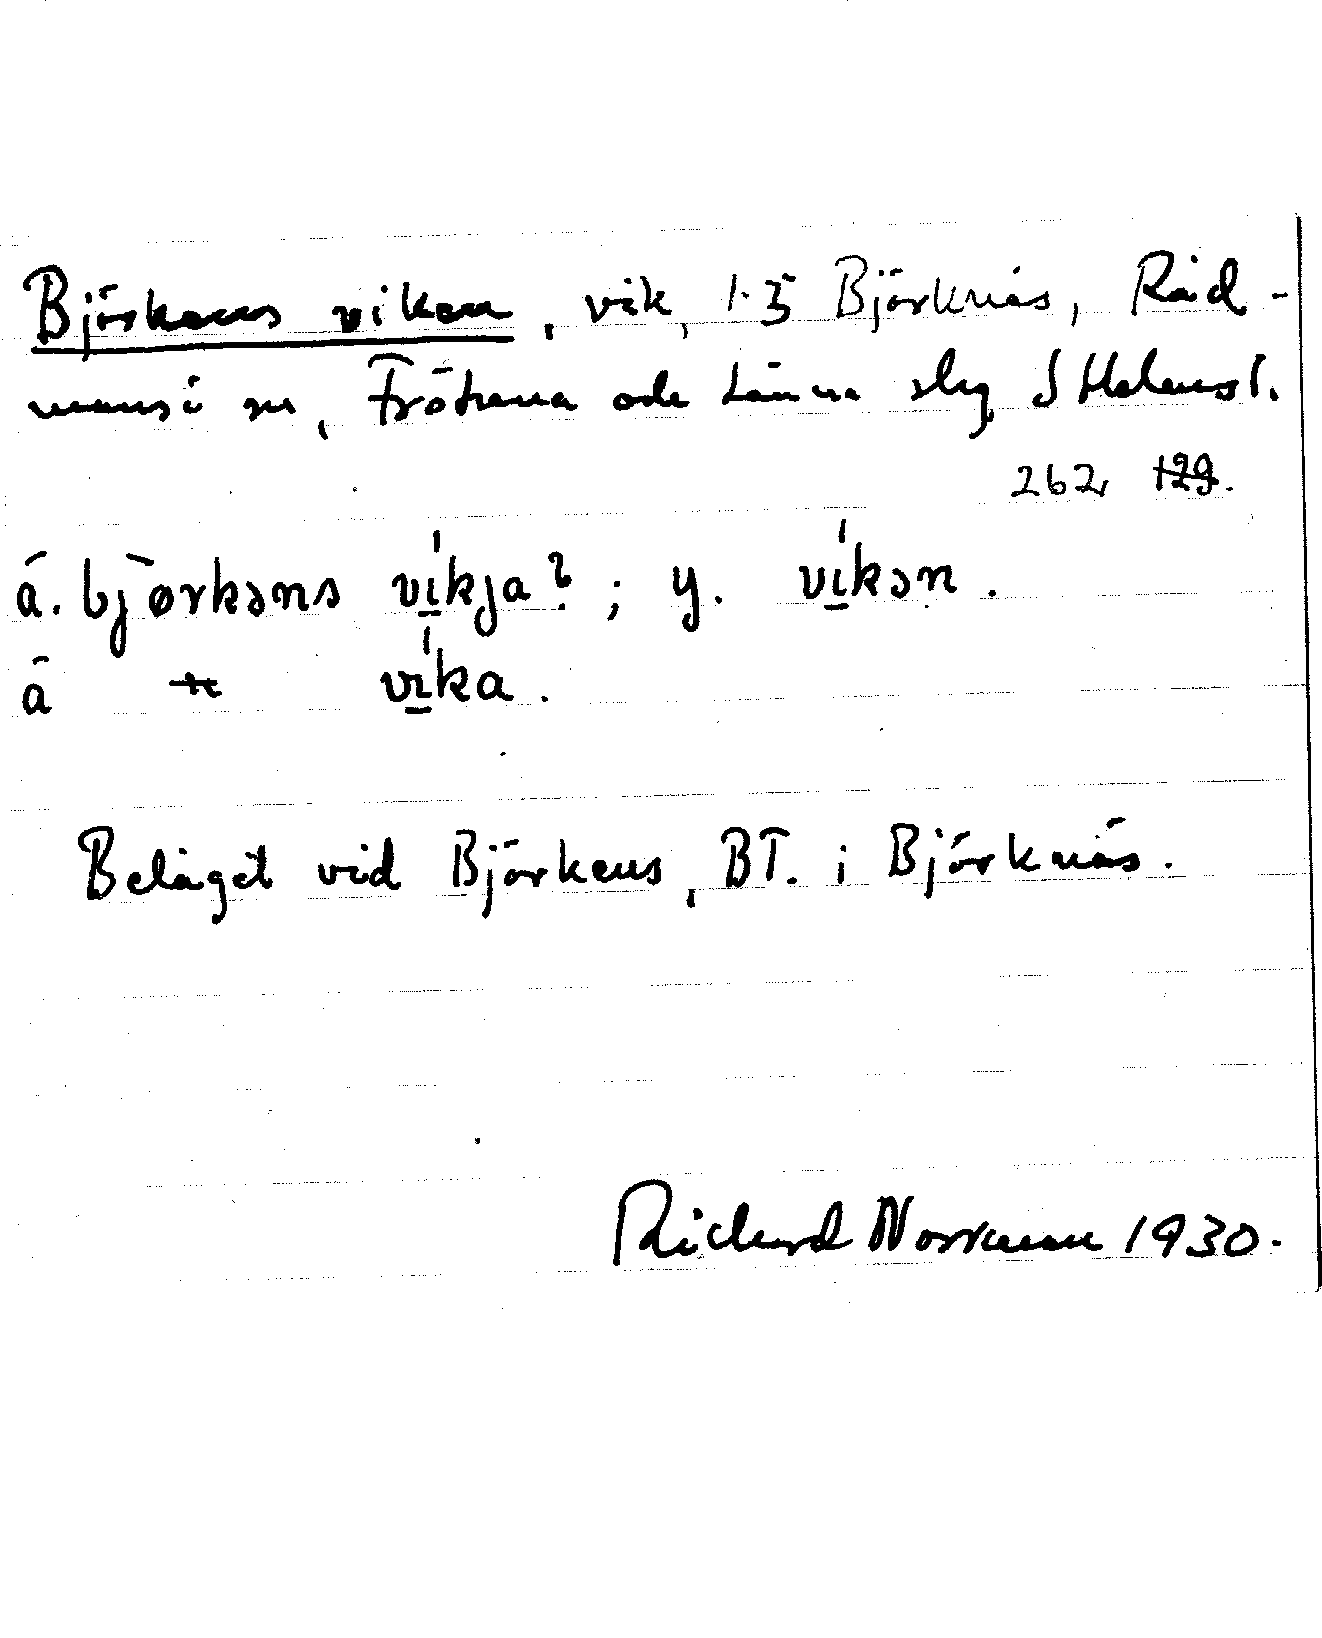 Björkens viken, vik, 1-3 Björknäs, Råd-
mansö sn, Frötuna och Länna slg S Holmsl.
262 129.
ä. bjørkəns víkja?; y. víkən.
ä víka.
Beläget vid Björkens, BT. i Björknäs.
Richard Norrman 1930.